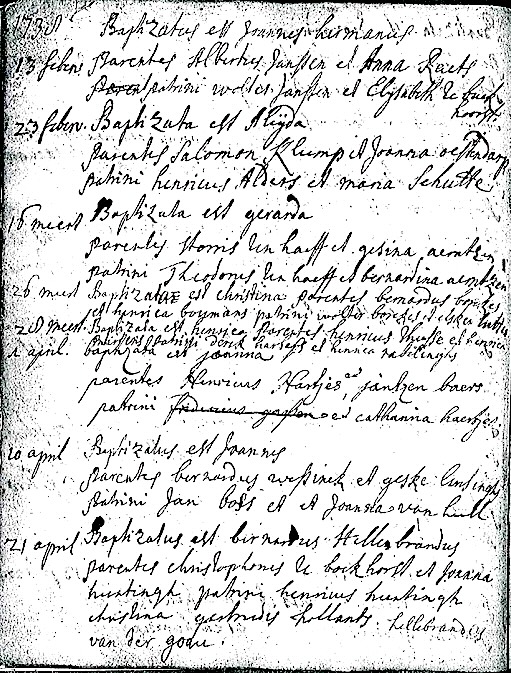 1738 Baptizatus est Joannes hermanus
13 febru. parentes Albertus Janssen et Anna Raets
patrini wolter Janssen et Elysabeth
horst
23 febru. Baptizata est Aleyda
parentes Salomon Klump et Joanna oestendarp
patrini henricus Alders et maria Schutte
16 meert Baptizata est gerarda
parentes Horris ten haeff et gesina aerntzen
patrini Theodorus ten haeff et bernardina aerntzen
26 meert Baptizata est christina parentes bernardus
et henrica boymans patrini wolter et
28 meert Baptizata est henrica parentes henricus et henrica
patrini derck et henrica
1 april. baptizata est joanna
parentes Henricus Hartjes et jantzen boers
patrini et catharina haertjes
20 april Baptizatus est Joannes
parentes bernardus wessinck et geske
patrini Jan boes et et Joanna van hull
21 april Baptizatus est bernardus Hellebrandus
parentes christophorus te bockhorst et Joanna
huntingh patrini henricus huntingh
christina gertrudis hollants hellebrandus
van der goor.